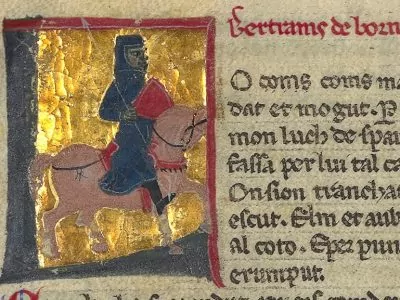 Bertrams de born
O coms coms ma
dat et mogut. P
mon luch de spar
fassa per lui tal ca
On sion trancha
escut. Elm et aub
al coto. Eper pun
e rumput.